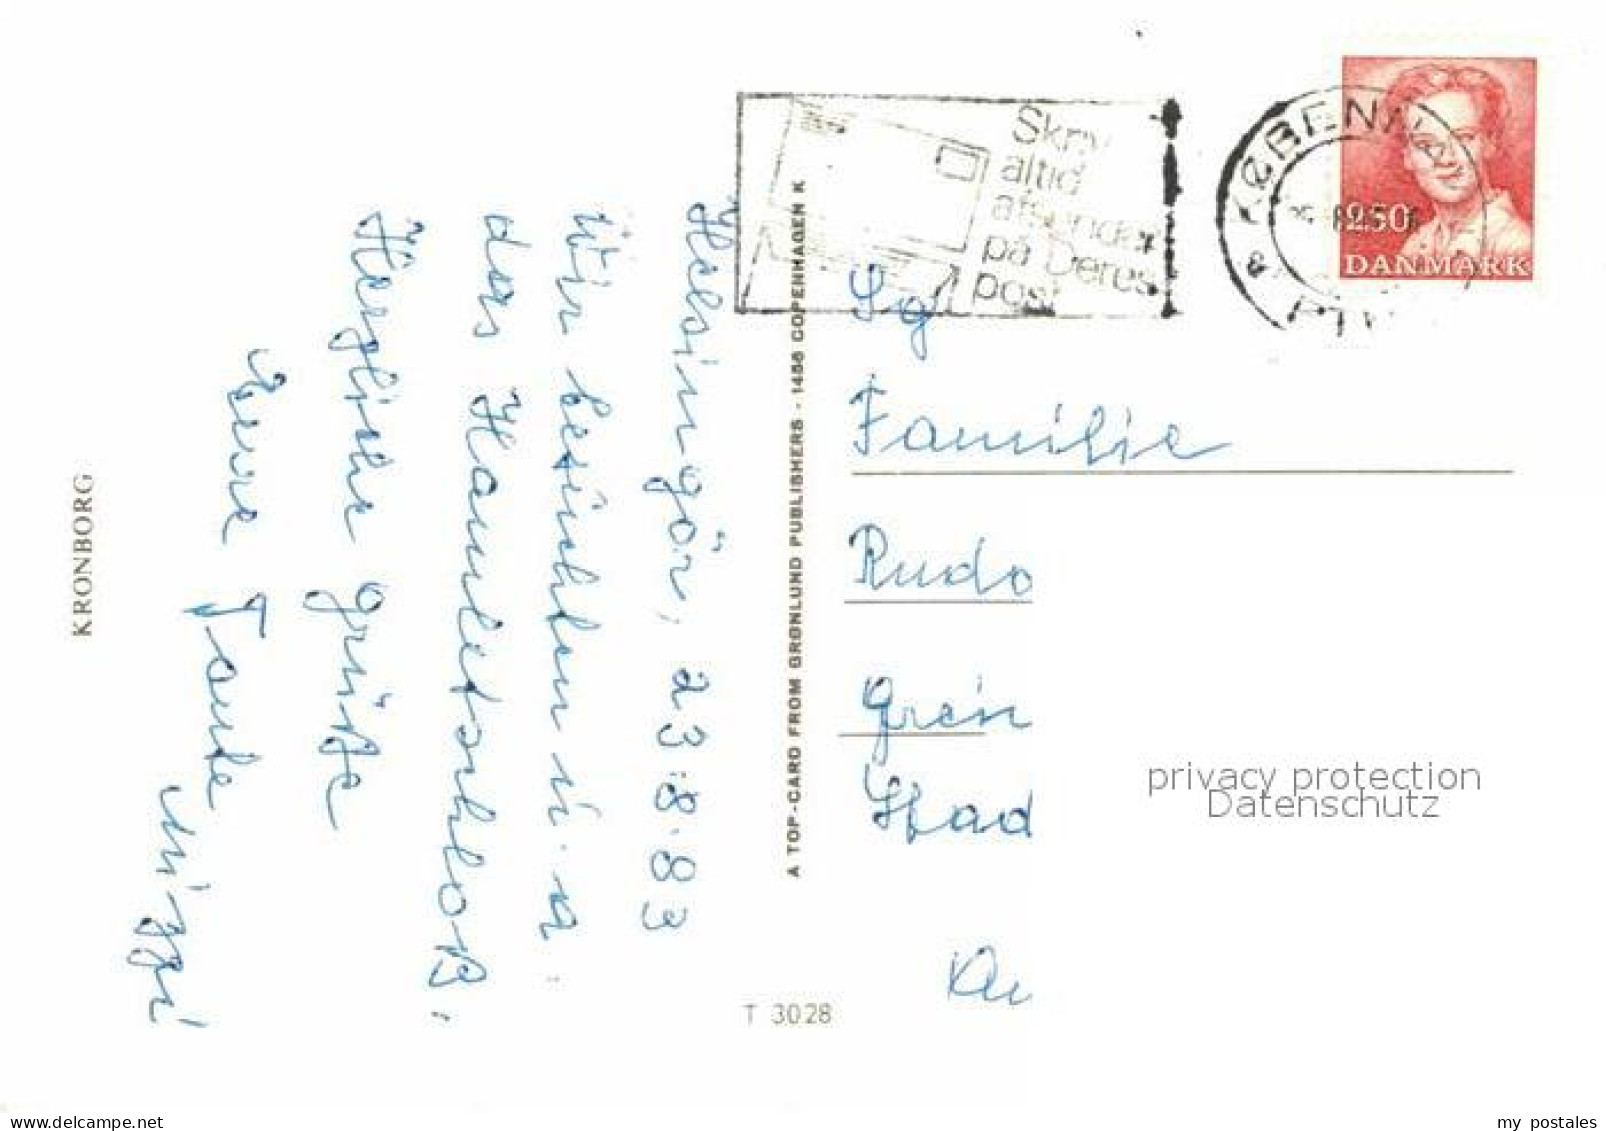 Helsingör, 23.8.83
Wir besuchten u. a.
das Hamletschloß.
Herzliche Grüße
Eure Tante
Mizzi
KRONBORG
A TOP-CARD FROM GRØNLUND PUBLISHERS - 1466 COPENHAGEN K
T 3028
Skriv
altid
afsender
på Deres
post
KØBENHAVN
250
DANMARK
Familie
Rudo
Grein
Stad
privacy protection
Datenschutz
www.delcampe.net
my_postales